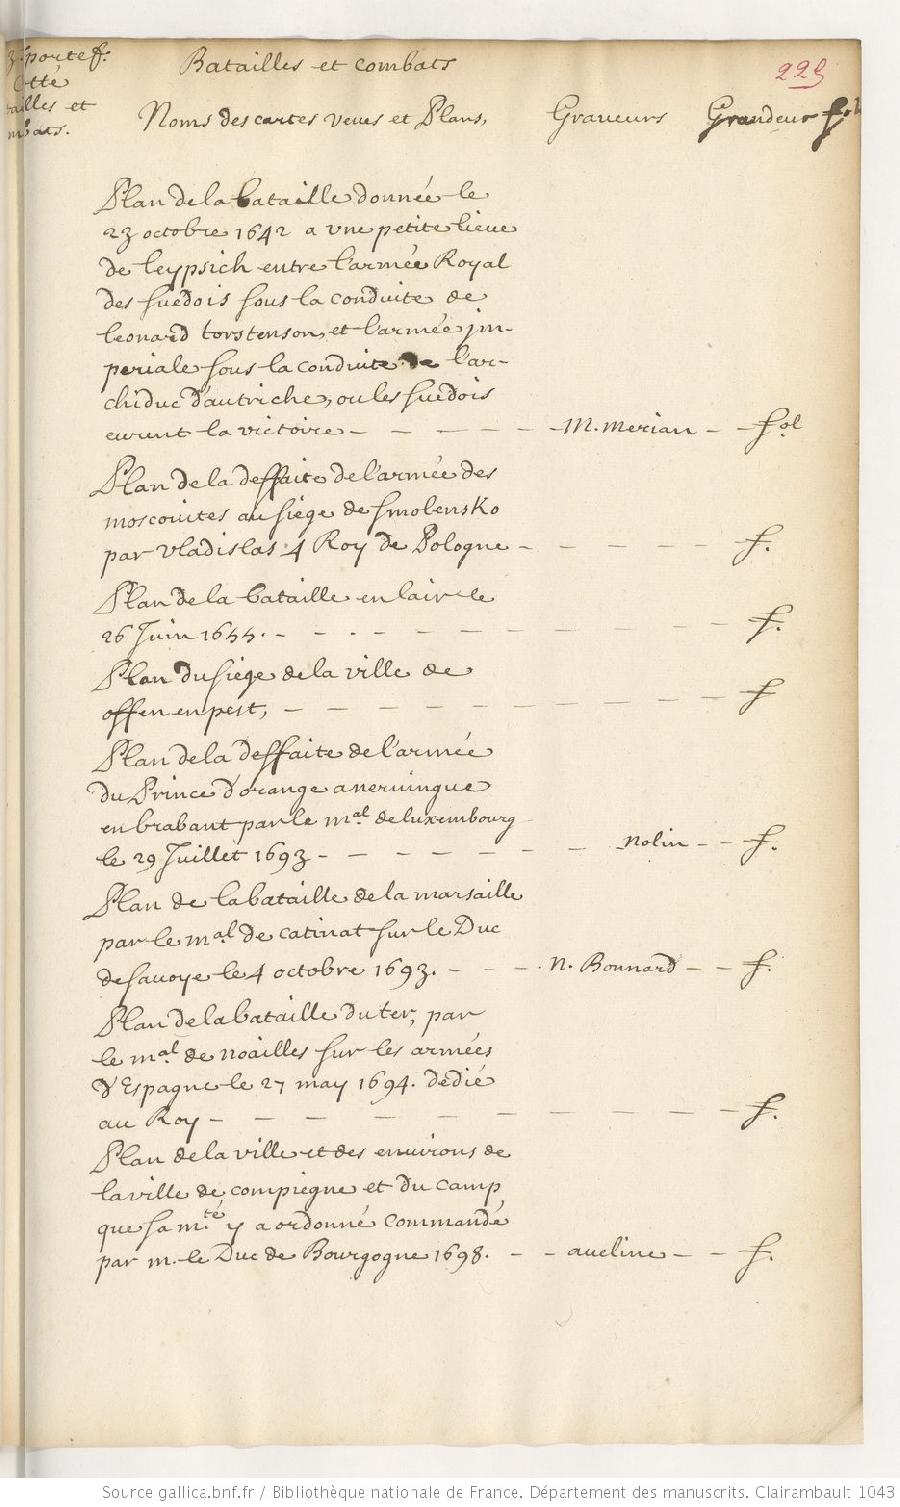 3e portef.
Cotté
Batailles et combats
225
tailles et
mbats.
Noms des cartes veues et Plans, Graveurs Grandeur fol
Plan de la bataille donnée le
23 octobre 1642 a vne petite lieue
de leypsich entre l'armée Royal
des suedois sous la conduite de
leonard torstenson, et l'armée jm-
periale sous la conduite de l'ar-
chiduc d'autriche, ou les suedois
eurent la victoire - - - - - M. Merian - - fol
Plan de la deffaite de l'armée des
moscouites au siége de smolensko
par vladislas 4 Roy de Pologne - - - - - f.
Plan de la bataille en l'air le
26 Juin 1655. - - - - - - - - f.
Plan du siége de la ville de
offen en pest, - - - - - - - - f
Plan de la deffaite de l'armée
du Prince d'orange a neruingue
en brabant par le mal. de luxembourg
le 29 Juillet 1693 - - - - - - nolin - - f.
Plan de la bataille de la marsaille
par le mal. de catinat sur le Duc
de sauoye le 4 octobre 1693. - - - n. Bonnard - - f.
Plan de la bataille du ter, par
le mal. de noailles sur les armées
d'Espagne le 27 may 1694. dedié
au Roy - - - - - - - - - f.
Plan de la ville et des enuirons de
la ville de compiegne et du camp
que sa m.té y a ordonné commandé
par m. le Duc de Bourgogne 1698. - - aueline - - f.
Source gallica.bnf.fr / Bibliothèque nationale de France. Département des manuscrits. Clairambault 1043